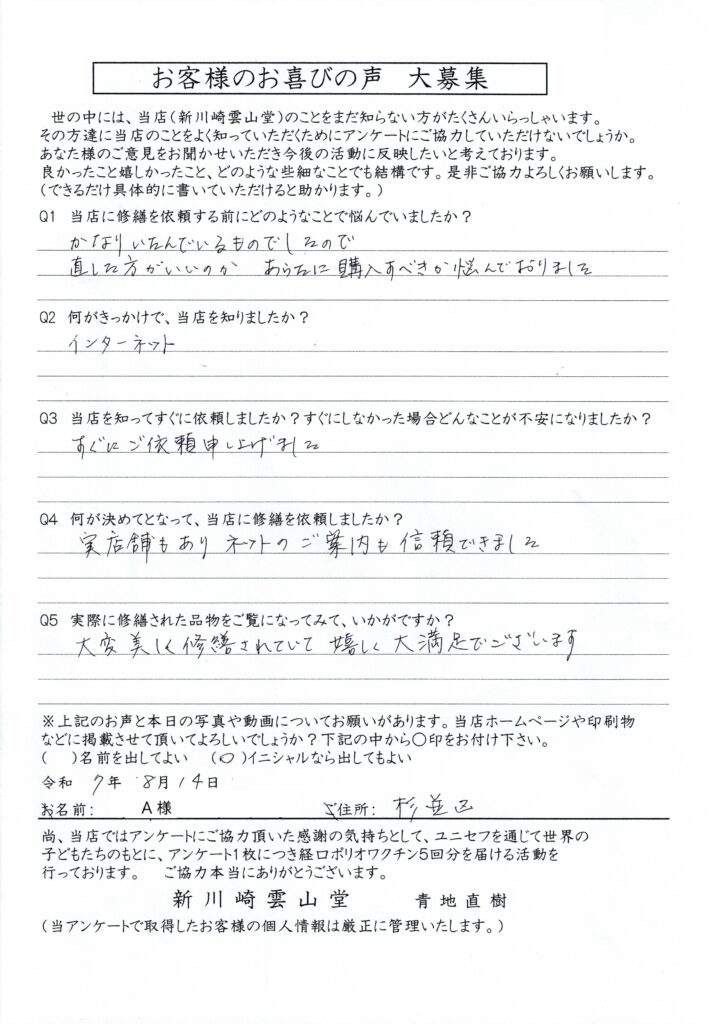 お客様のお喜びの声　大募集
世の中には、当店（新川崎雲山堂）のことをまだ知らない方がたくさんいらっしゃいます。
その方達に当店のことをよく知っていただくためにアンケートにご協力していただけないでしょうか。
あなた様のご意見をお聞かせいただき今後の活動に反映したいと考えております。
良かったこと嬉しかったこと、どのような些細なことでも結構です。是非ご協力よろしくお願いします。
（できるだけ具体的に書いていただけると助かります。）
Q1　当店に修繕を依頼する前にどのようなことで悩んでいましたか？
かなりいたんでいるものでしたので
直した方がいいのか　あらたに購入すべきか悩んでおりました
Q2　何がきっかけで、当店を知りましたか？
インターネット
Q3　当店を知ってすぐに依頼しましたか？すぐにしなかった場合どんなことが不安になりましたか？
すぐにご依頼申し上げました
Q4　何が決めてとなって、当店に修繕を依頼しましたか？
実店舗もあり ネットのご案内も信頼できました
Q5　実際に修繕された品物をご覧になってみて、いかがですか？
大変美しく修繕されていて 嬉しく大満足でございます
※上記のお声と本日の写真や動画についてお願いがあります。当店ホームページや印刷物
などに掲載させて頂いてよろしいでしょうか？下記の中から〇印をお付け下さい。
（　）名前を出してよい　（〇）イニシャルなら出してもよい
令和　7年　8月14日
お名前：　A様　ご住所：杉並区
尚、当店ではアンケートにご協力頂いた感謝の気持ちとして、ユニセフを通じて世界の
子どもたちのもとに、アンケート1枚につき経口ポリオワクチン5回分を届ける活動を
行っております。　ご協力本当にありがとうございます。
新川崎雲山堂　青地直樹
（当アンケートで取得したお客様の個人情報は厳正に管理いたします。）